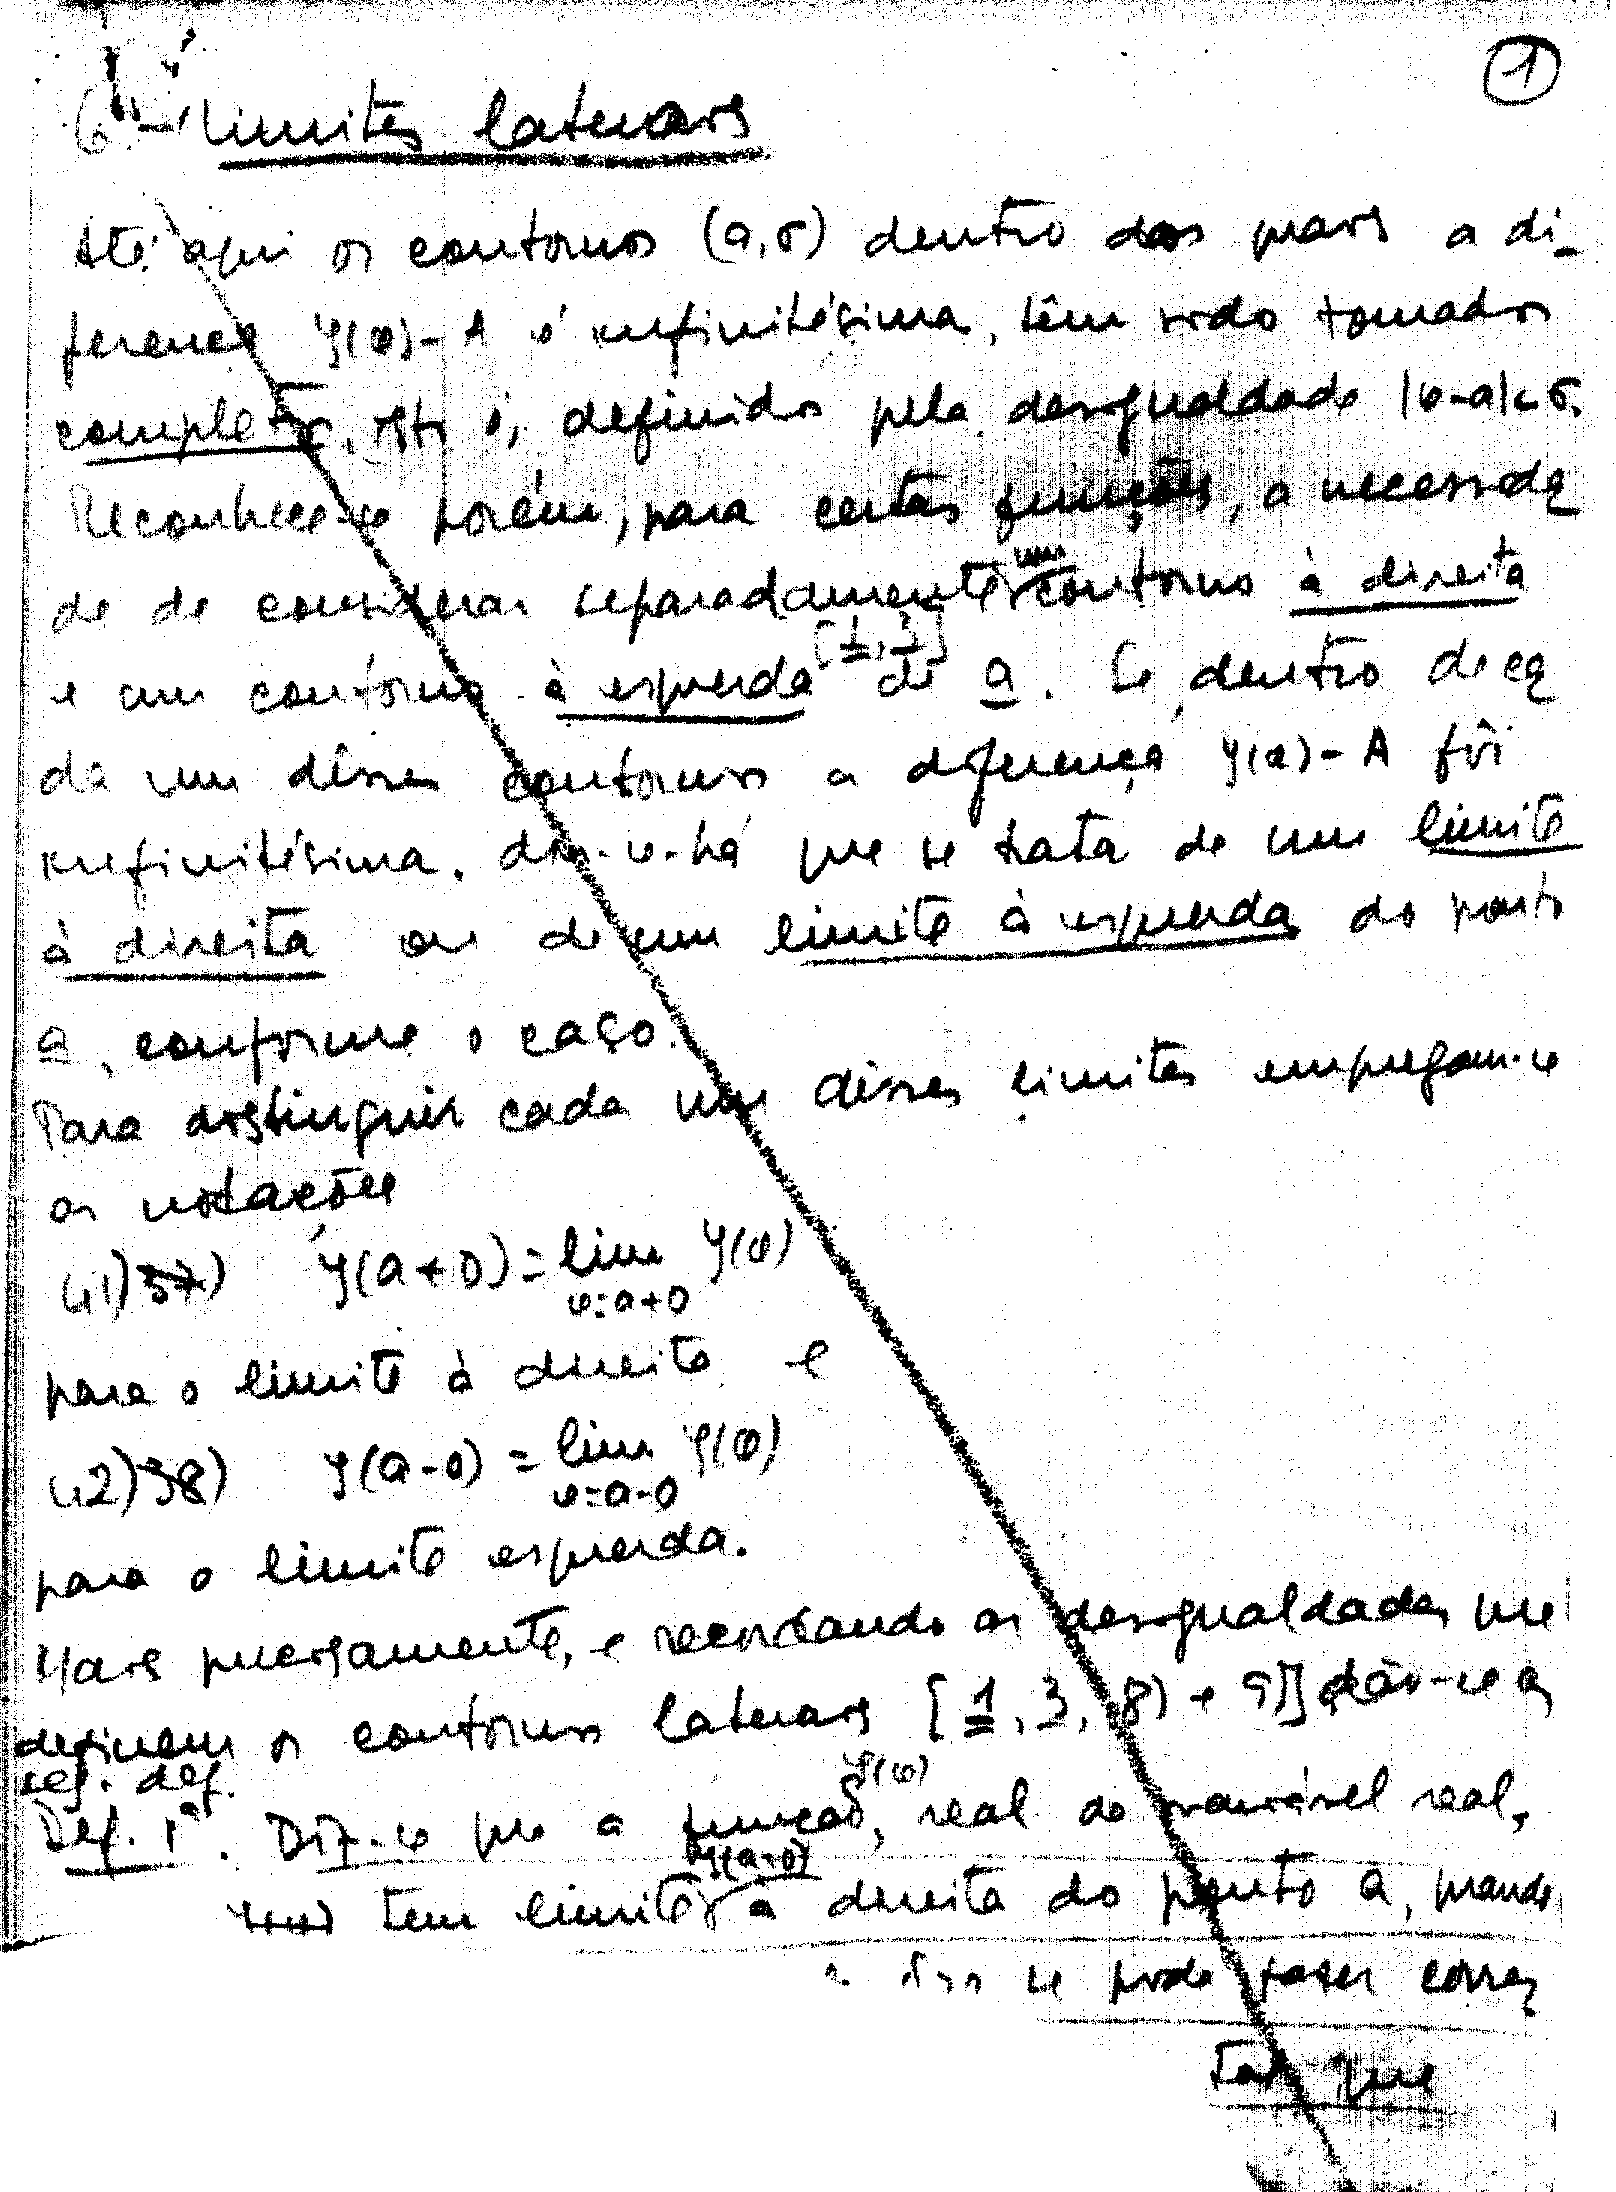 1
6 - Limites laterais
Até aqui os contornos (a,σ) dentro dos quais a di-
ferença y(x)-A é infinitésima, têm sido tomados
completos, isto é, definidos pela desigualdade |x-a|<σ.
Reconhece-se porém, para certas funções, a necessida
de de considerar separadamente um contorno à direita
e um contorno à esquerda [1,3] de a. Se, dentro de ca
da um dêsses contornos a diferença y(x)-A fôr
infinitésima, dir-se-há que se trata de um limite
à direita ou de um limite à esquerda do ponto
a, conforme o caso.
Para distinguir cada um dêsses limites empregam-se
as notações
41) 37) y(a+0) = lim y(x)
x=a+0
para o limite à direita e
42) 38) y(a-0) = lim y(x)
x=a-0
para o limite esquerda.
Mais precisamente, e recordando as desigualdades que
definem os contornos laterais [1, 3, 8) e 9)] dão-se as
seg. def.
Def. 1ª. Diz-se que a função y(x), real da variável real,
tem limite y(a+0) à direita do ponto a, quando
se pode fazer corres
tal que